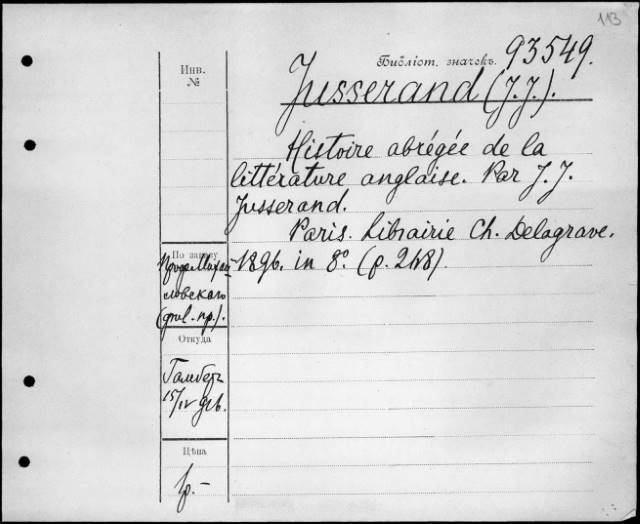 113
Библіот. значекъ. 93549.
Инв.
№
Jusserand (J. J.).
Histoire abrégée de la
littérature anglaise. Par J. J.
Jusserand.
Paris. Librairie Ch. Delagrave.
1896. in 8°. (p. 248).
По заказу
ловскаго
Откуда
15/IV
Цѣна
1р.-